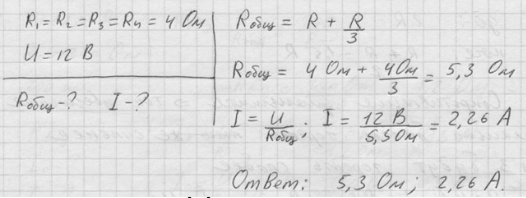 R₁=R₂=R₃=R₄=4 Ом
U=12 В
Rобщ-? I-?
Rобщ = R + R/3
Rобщ = 4 Ом + 4Ом/3 = 5,3 Ом
I = U/Rобщ; I = 12 В/5,3 Ом = 2,26 А
Ответ: 5,3 Ом; 2,26 А.